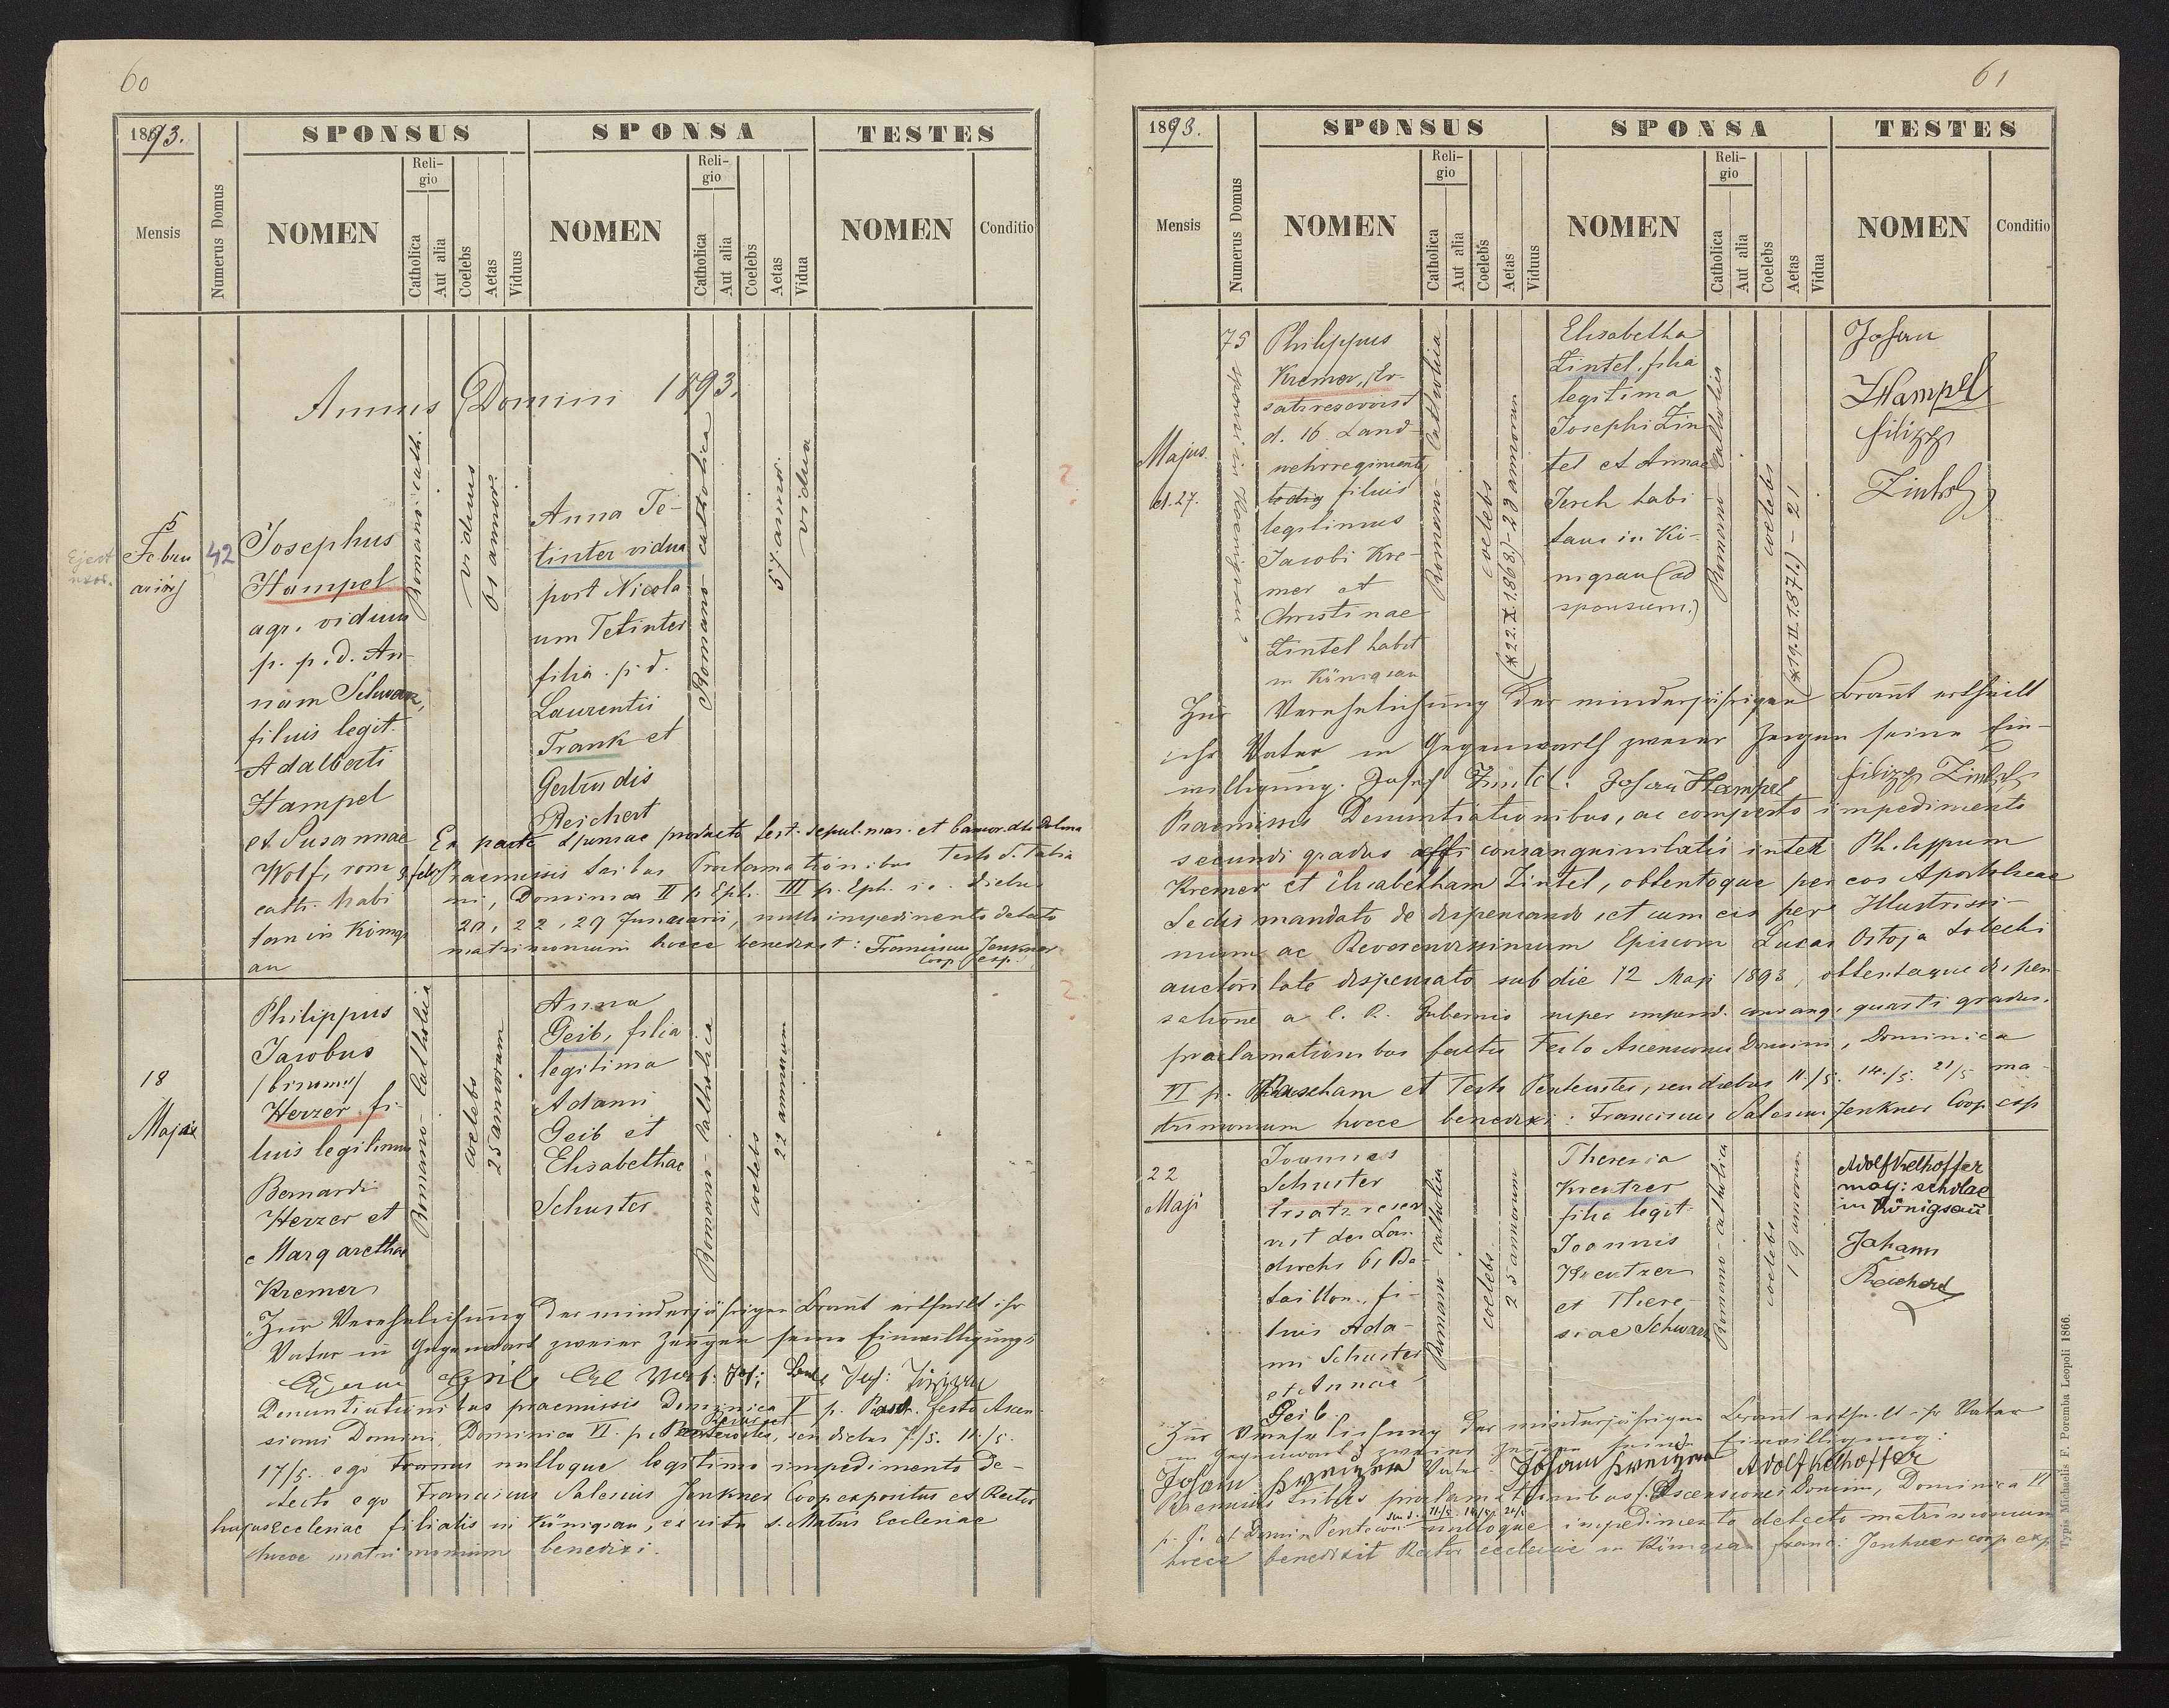 60
1893.
SPONSUS
SPONSA
TESTES
Mensis
Numerus Domus
NOMEN
Religio
Catholica
Aut alia
Coelebs
Aetas
Viduus
NOMEN
Religio
Catholica
Aut alia
Coelebs
Aetas
Vidua
NOMEN
Conditio
Annus Domini 1893.
5
Febru
arius
42
Josephus
Hampel
agr. viduus
p. p. d. An-
nam Schwarz,
filius legit.
Adalberti
Hampel
et Susannae
Wolf, rom
cath. habi
tan in Königs
au
Romano cath.
viduus
61 annor.
Anna Te-
tinter vidua
post Nicola
um Tetinter
filia p. d.
Laurentii
Frank et
Gertrudis
Reichert
Romano-catholica
57 annor.
vidua
Ex parte Sponsae producto test. sepul. mar. et
Praemissis tribus Proclamationibus Festo
Dominica II p. Eph. III p. Eph. i. e. diebus
22, 29 Januarii, nullo impedimento detecto
matrimonium hocce benedixit: Franciscus Jenkner
Coop. exp.
18
Majus
Philippus
Jacobus
/binomis/
Herzer, fi-
lius legitimus
Bernardi
Herzer et
Margarethae
Kremer
Romano-Catholica
coelebs
25 annorum
Anna
Geib, filia
legitima
Adami
Geib et
Elisabethae
Schuster
Romano-Catholica
coelebs
22 annorum
Zur Verehelichung der minderjährigen Braut ertheilt ihr
Vater in Gegenwart zweier Zeugen seine Einwilligung:
Denuntiationibus praemissis Dominica V p. Pasch. festo Ascen-
sionis Domini, Dominica VI. p. seu diebus 7/5. 11/5.
17/5. ego nulloque legitimo impedimento de-
tecto ego Franciscus Salesius Jenkner Coop expositus et Rector
hujus Ecclesiae filialis in Königsau, ex ritu s. Matris Ecclesiae
hocce matrimonium benedixi.
61
1893.
SPONSUS
SPONSA
TESTES
Mensis
Numerus Domus
NOMEN
Religio
Catholica
Aut alia
Coelebs
Aetas
Viduus
NOMEN
Religio
Catholica
Aut alia
Coelebs
Aetas
Vidua
NOMEN
Conditio
Majus
d. 27.
75
sponsi in Koenigsau
Philippus
Kremer, Er-
satzreservist
d. 16 Land-
wehrregiments
filius
legitimus
Jacobi Kre-
mer et
Christinae
Zintel habit
in Königsau
Romano-Catholica
coelebs
(*22.X.1868)-23 annorum
Elisabetha
Zintel, filia
legitima
Josephi Zin
tel et Annae
Jerch habi
tans in Kö-
nigsau (ad
sponsum.)
Romano-catholica
coelebs
(*19.II.1871.) - 21
Johan
Hampel
Filipp
Zintel
Zur Verehelichung der minderjährigen Braut ertheilt
ihr Vater in Gegenwarth zweier Zeugen seine Ein-
willigung. Josef Zintel. Johan Hampel Filipp Zintel
Praemissis Denuntiationibus, ac comperto impedimento
secundi gradus consanguinitatis inter Philippum
Kremer et Elisabetham Zintel, obtentoque per eos Apostolicae
Sedis mandato de dispensando, et cum eis per Illustrissi-
mum ac Reverendissimum Episcom Lucas Ostoja Solecki
auctoritate dispensato sub die 12 Maji 1893, obtentaque dispen-
satione a C. R. Gubernio super imped. consang. quarti gradus.
proclamationibus factis Festo Ascensionis Domini, Dominica
VI p. Pascham et Festo Pentecostes, seu diebus 11./5. 14./5. 21/5 ma-
trimonium hocce benedixi: Franciscus Salesius Jenkner Coop exp
22
Maji
Joannes
Schuster
Ersatz reser
vist des Lan
dwehr 61 Ba-
taillon., fi-
lius Ada-
mi Schuster
et Annae
Geib
Romano-catholica
coelebs
25 annorum
Theresia
Kreutzer
filia legit.
Joannis
Kreutzer
et There-
siae Schwarz
Romano-catholica
coelebs
19 annorum
Adolf Kelhoffer
mag: scholae
in Königsau
Johann
Reichert
Zur Verehelichung der minderjährigen Braut ertheilt ihr Vater
in Gegenwart zweier Zeugen seine Einwilligung:
Johan Kreizer Vater. Johan Kreizer Adolf Kelhoffer
Praemissis tribus proclamationibus Ascensionis Domini, Dominica VI
p. P. et Domin Pentecos. nulloque impedimento detecto matrimonium
hocce benedixit Rector ecclesiae in Königsau Franc: Jenkner coop exp
Typis Michaelis F. Poremba Leopoli 1866.